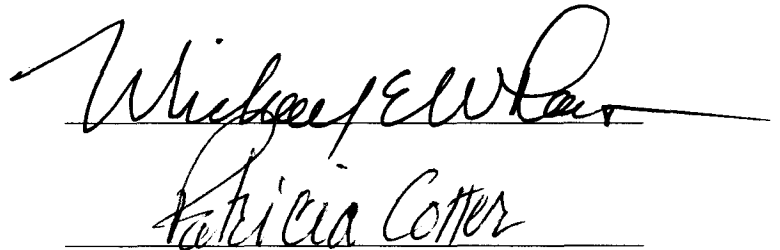 Michael E Wheat
Patricia Cotter